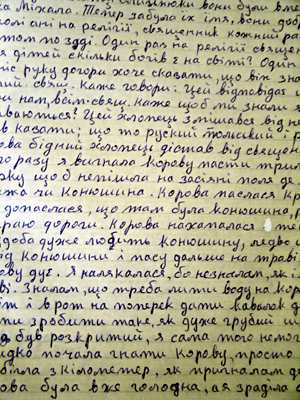 ка Міхала. Тепер забула їх імя, вони дов
колані на релігії, священник кожний ра
том по заді. Один раз на релігії священ
я дітей скільки богів є на світі? Один
ніс руку догори хоче сказати, що він зна
лий. свящ. каже говори: Цей відповідає
ви нам, всім свящ. каже щоб ми знали
иваються? Цей хлопець змішався від не
в казати; що то руский польский і
ова бідний хлопець дістав від священ
го разу я вигнала корову пасти три
жу щоб непішла на засіяні поля де
та чи конюшина. Корова паслася кр
допаслася, що там була конюшина,
раю дороги. Корова нахапалася те
доба дуже любить конюшину, ледво
од конюшини і пасу дальше на траві
ову дує. Я налякалася, бо незналам, як і
ві. Зналам, що треба лити воду на коро
ім і в рот на поперек дати кавалок
ти зробити таке, як дуже грубий ш
а був розкритий, я сама того немог
идко почала гнати корову, просто
білла з кілометер, як пригналам д
ова була вже голодна, а я зраділа